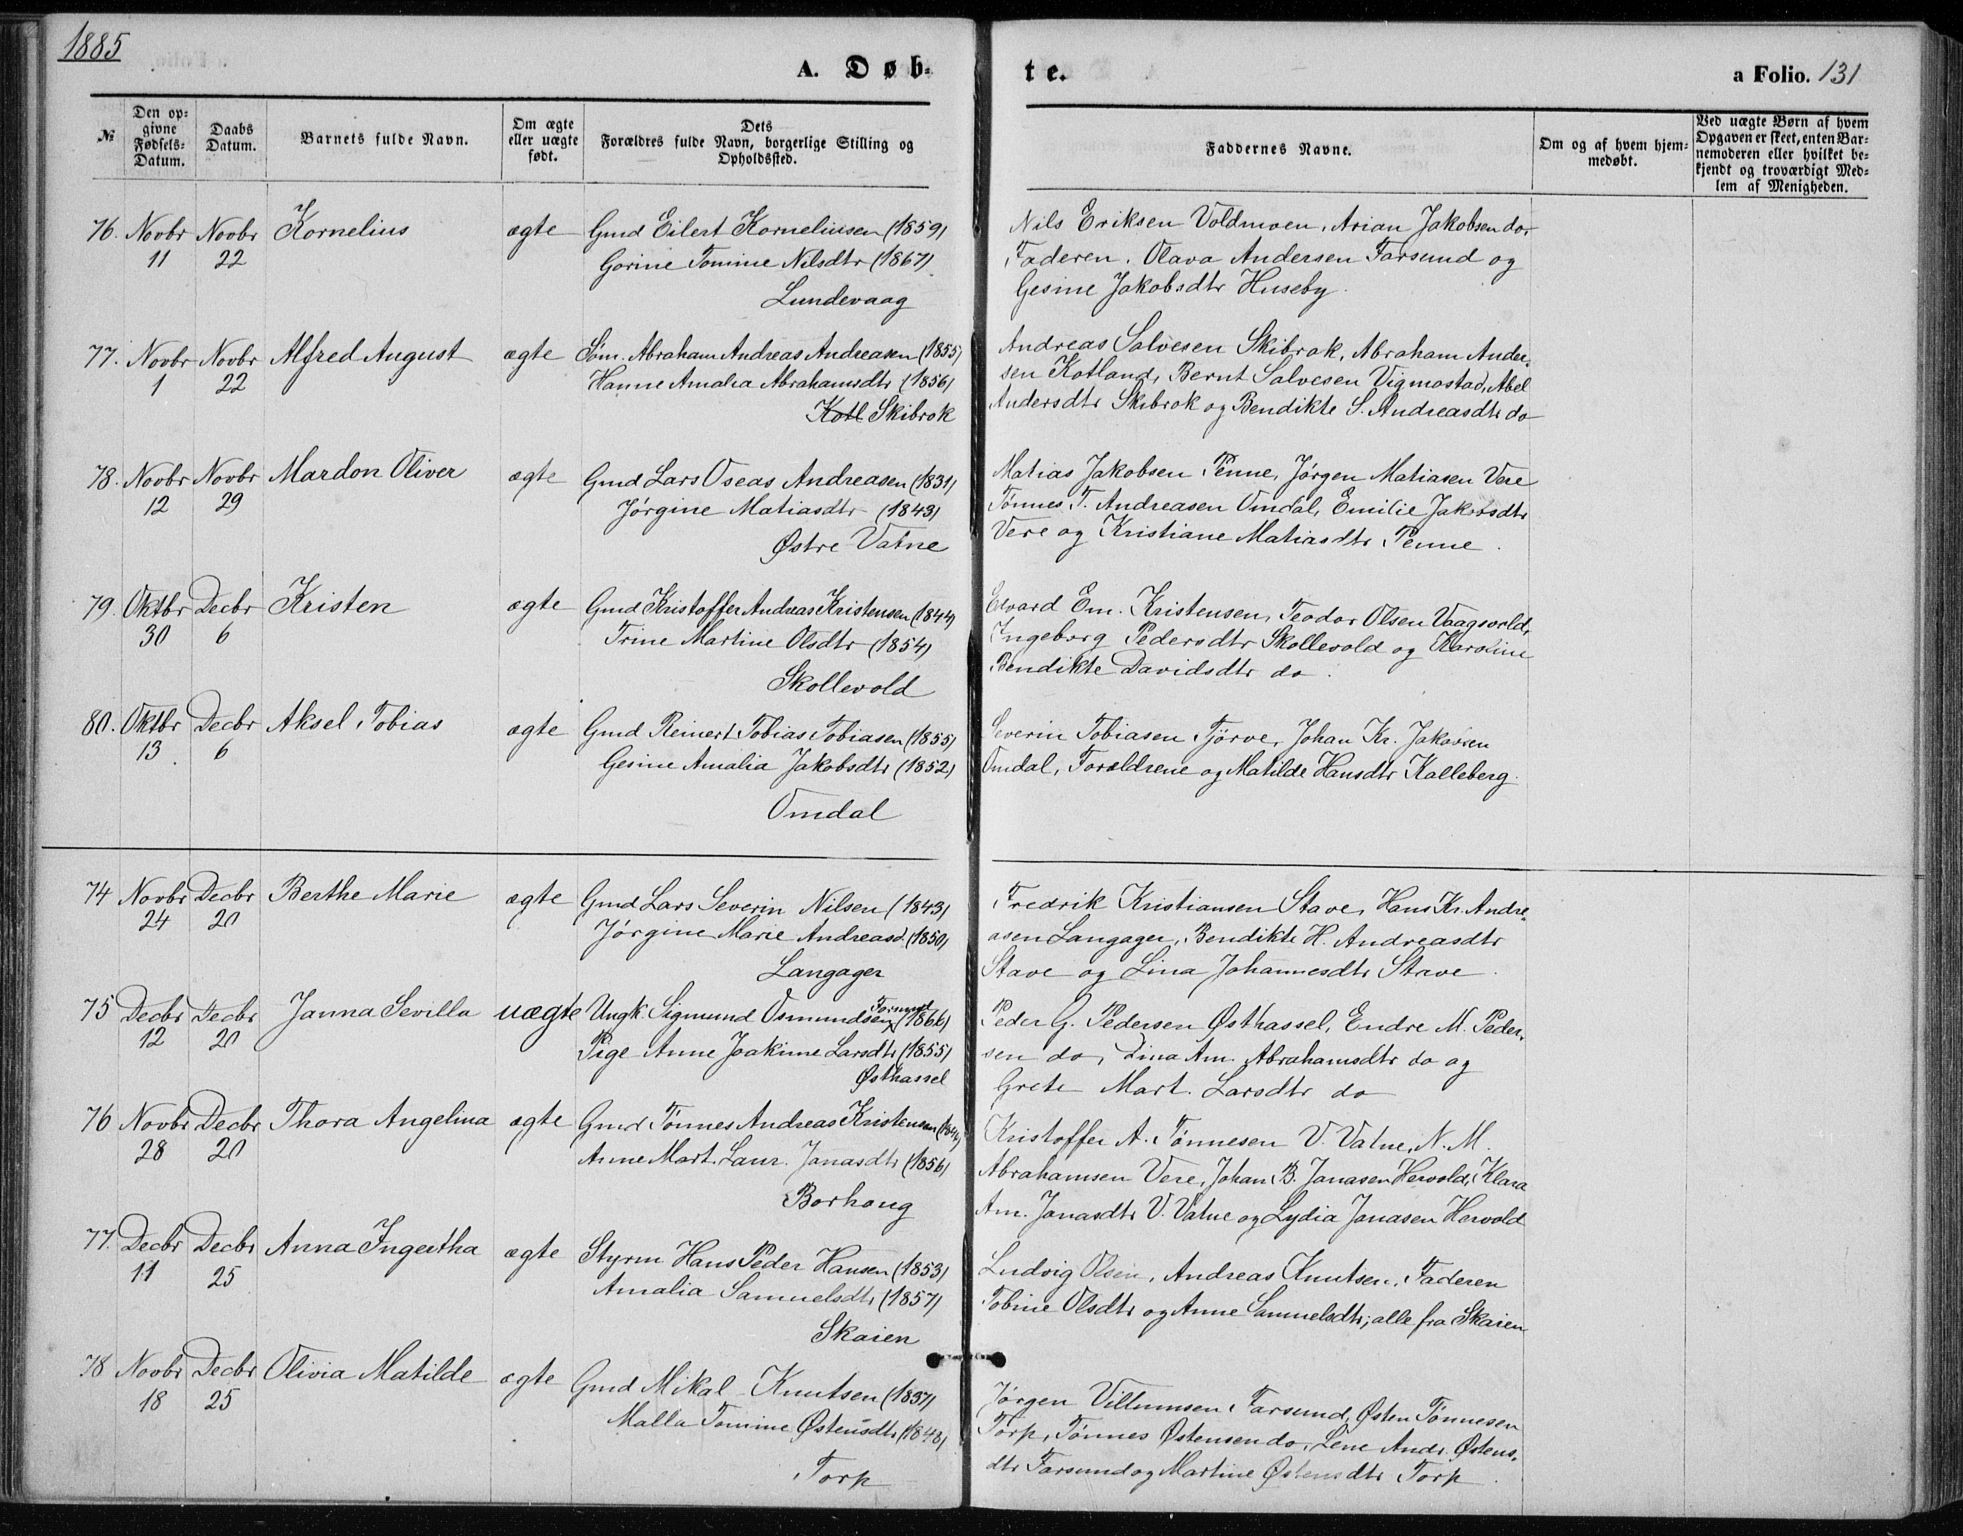 1885
A. Døb-
te.
a Folio. 131
№
Den op-
givne
Fødsels-
Datum.
Daabs
Datum.
Barnets fulde Navn.
Om ægte
eller uægte
født.
Dets
Forældres fulde Navn, borgerlige Stilling og
Opholdssted.
Faddernes Navne.
Om og af hvem hjem-
medøbt.
Ved uægte Børn af hvem
Opgaven er skeet, enten Bar-
nemoderen eller hvilket be-
kjendt og troværdigt Med-
lem af Menigheden.
76. Novbr Novbr Kornelius ægte Gmd Eilert Korneliusen (1859)
11 22 Gorine Tomine Nilsdtr (1867)
Lundevaag
Nils Eriksen Voldmoen, Arian Jakobsen do,
Faderen, Olava Andersen Farsund og
Gesine Jakobsdtr Huseby.
77. Novbr Novbr Alfred August ægte Søm. Abraham Andreas Andreasen (1855)
1 22 Hanne Amalia Abrahamsdtr (1856)
Kotl Skibrok
Andreas Salvesen Skibrok, Abraham Ander-
sen Kotland, Bernt Salvesen Vigmostad, Abel
Andersdtr Skibrok og Bendikte S. Andreasdtr do
78. Novbr Novbr Mardon Oliver ægte Gmd Lars Oseas Andreasen (1831)
12 29 Jørgine Matiasdtr (1843)
Østre Vatne
Matias Jakobsen Penne, Jørgen Matiasen Vere
Tønnes T. Andreasen Omdal, Emilie Jakobsdtr
Vere og Kristiane Matiasdtr Penne.
79. Oktbr Decbr Kristen ægte Gmd Kristoffer Andreas Kristensen (1844)
30 6 Trine Martine Olsdtr (1854)
Skollevold
Edvard Em. Kristensen, Teodor Olsen Vaagsvold,
Ingeborg Pedersdtr Skollevold og Karoline
Bendikte Davidsdtr do.
80. Oktbr Decbr Aksel Tobias ægte Gmd Reinert Tobias Tobiasen (1855)
13 6 Gesine Amalia Jakobsdtr (1852)
Omdal
Severin Tobiasen Tjørve, Johan Kr. Jakobsen
Omdal, Forældrene og Matilde Hansdtr Kalleberg.
74 Novbr Decbr Berthe Marie ægte Gmd Lars Severin Nilsen (1843)
24 20 Jørgine Marie Andreasd (1850)
Langager
Fredrik Kristiansen Stave, Hans Kr. Andre-
asen Langager, Bendikte H. Andreasdtr
Stave og Lina Johannesdtr Stave.
75 Decbr Decbr Janna Sevilla uægte Ungk. Sigmund Osmundsen (1866)
12 20 Pige Anne Joakime Larsdtr (1855)
Østhassel
Peder G. Pedersen Østhassel, Endre M. Peder-
sen do, Lina Am. Abrahamsdtr do og
Grete Mart. Larsdtr do
76 Novbr Decbr Thora Angelina ægte Gmd Tønnes Andreas Kristensen
28 20 Anne Mart. Laur. Jonasdtr (1856)
Borhoug
Kristoffer A. Tønnesen V. Vatne, N. M.
Abrahamsen Vere, Johan B. Jonasen Hervold, Klara
Am. Jonasdtr V. Vatne og Lydia Jonasen Hervold
77. Decbr Decbr Anna Ingertha ægte Styrm Hans Peder Hansen (1853)
11 25 Amalia Samuelsdtr (1857)
Skaien
Ludvig Olsen, Andreas Knutsen, Faderen
Tobine Olsdtr og Anne Samuelsdtr; alle fra Skaien
78 Novbr Decbr Olivia Matilde ægte Gmd Mikal Knutsen (1837)
18 25 Malla Tomine Østensdtr (1848)
Torp
Jørgen Villumsen Farsund, Østen Tønnesen
Torp, Tønnes Østensen do, Lene Andr. Østens-
dtr Farsund og Martine Østensdtr Torp.